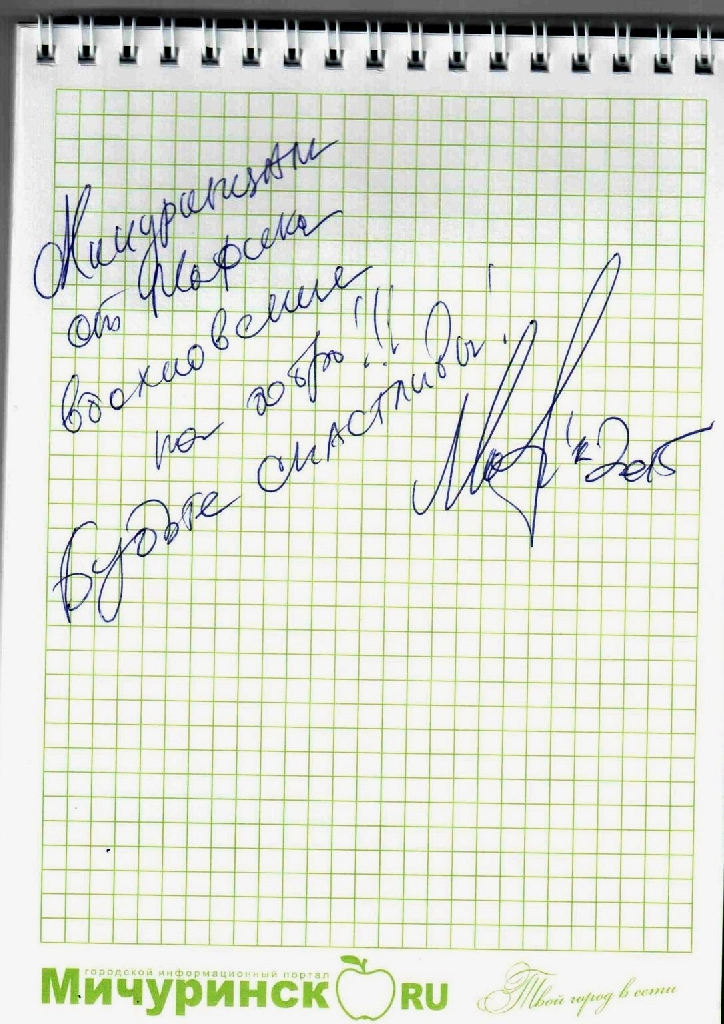 Мичуринцам
от Марфика
вдохновение
на добро!!!
Будьте счастливы!
Марф'к 2015
городской информационный портал
Мичуринск RU
Твой город в сети